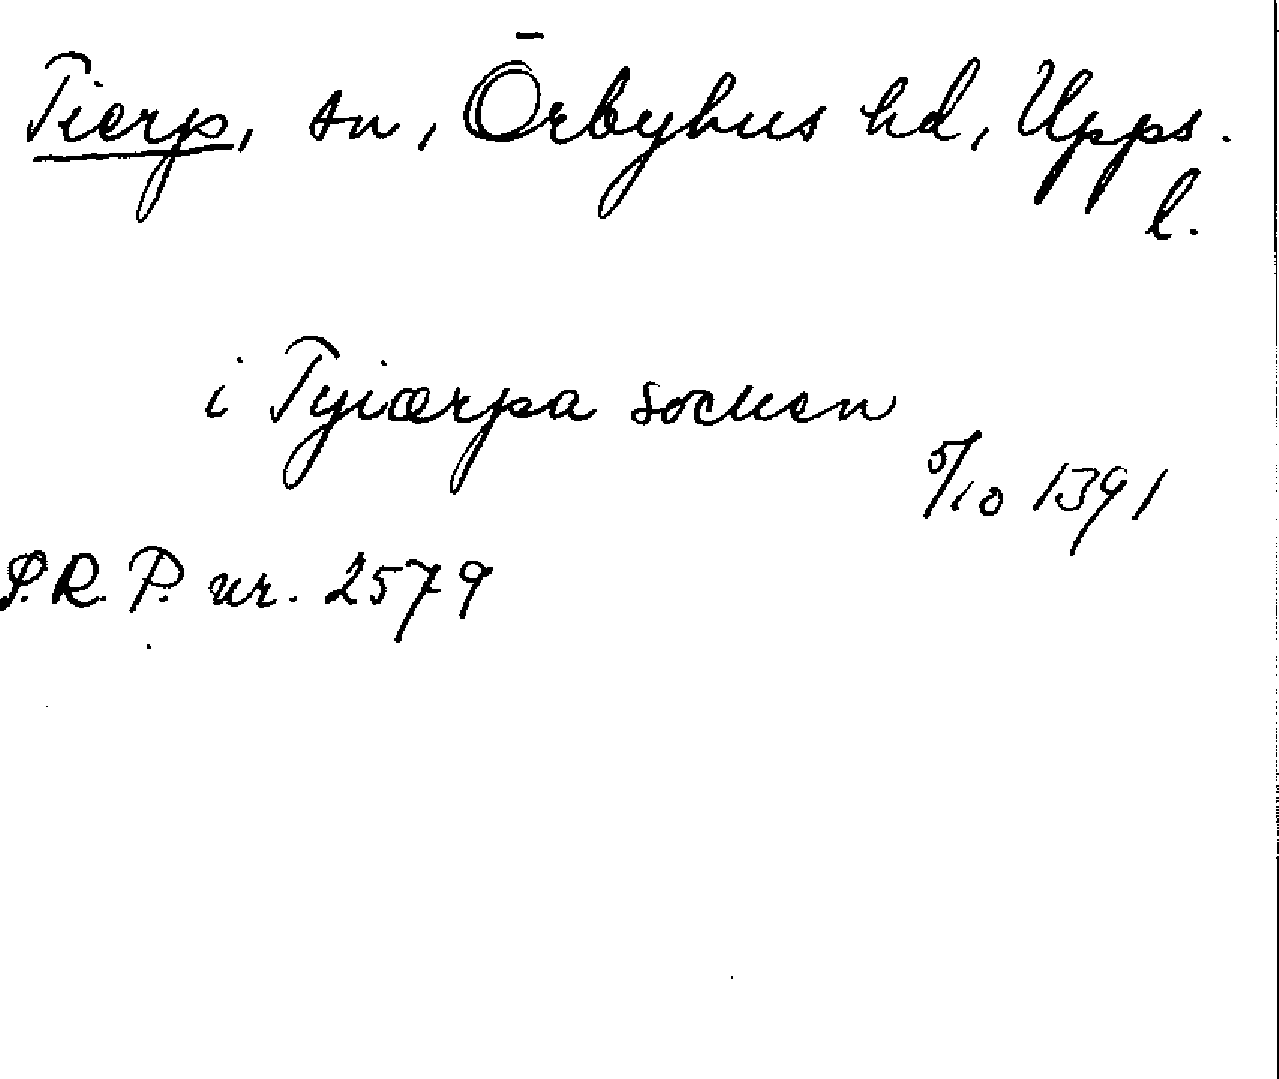 Tierp, sn, Örbyhus hd, Upps.
l.
i Tyiærpa socken
5/10 1391
S.R.P. nr. 2579